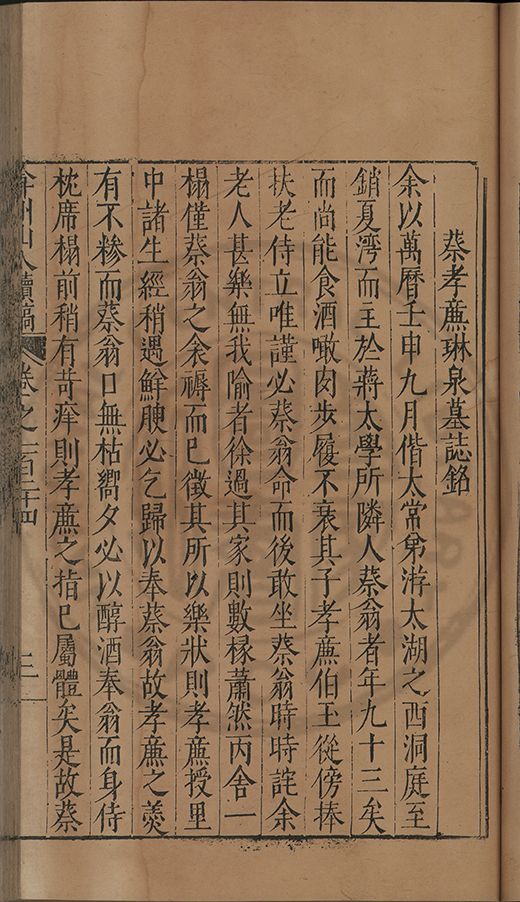 蔡孝廉琳泉墓誌銘
余以萬曆壬申九月偕太常弟游太湖之西洞庭至
銷夏灣而主於蔣太學所隣人蔡翁者年九十三矣
而尚能食酒噉肉步履不衰其子孝廉伯玉從傍捧
扶老侍立唯謹必蔡翁命而後敢坐蔡翁時時詫余
老人甚樂無我喻者徐過其家則數椽蕭然丙舍一
榻僅蔡翁之余褥而已徵其所以樂狀則孝廉授里
中諸生經稍遇鮮腴必乞歸以奉蔡翁故孝廉之羮
有不糝而蔡翁口無枯嚮夕必以醇酒奉翁而身侍
枕席榻前稍有苛痒則孝廉之指已屬體矣是故蔡
弇州山人續稿 卷之一百二十四 三